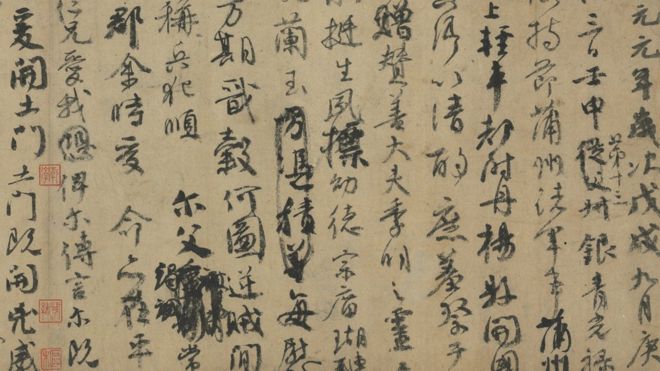 元元年歲次戊戌九月庚
三日壬申第十三從父叔銀青光祿
使持節蒲州諸軍事蒲州
上輕車都尉丹楊縣開國
卿以清酌庶羞祭于
贈贊善大夫季明之靈
挺生夙標幼德宗廟瑚
蘭玉方憑積善每慰
方期戩穀何圖逆賊間
稱兵犯順爾父竭誠常
郡余時受命亦在平
仁兄愛我恐俾爾傳言爾既
爰開土門土門既開凶威